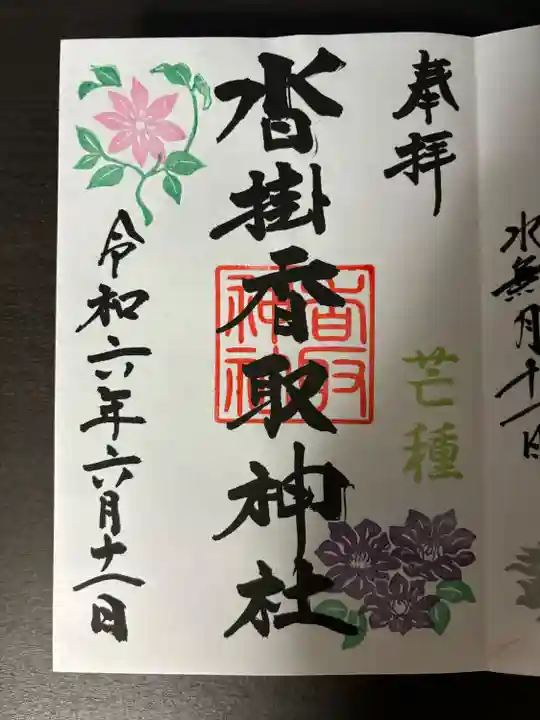 水無月十一日
奉拝
芒種
沓掛香取神社
香取
神社
令和六年六月十一日